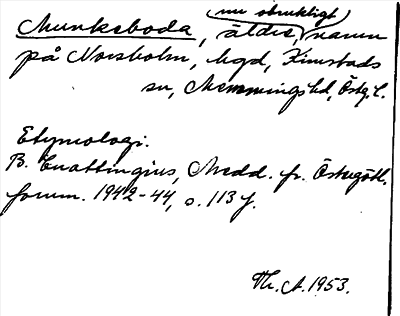 Munksboda, äldre, nu obrukligt namn
på Norsholm, hgd, Kimstads
sn, Memmings hd, Östg. l.
Etymologi.
B. Cnattingius, Medd. fr. Östergötl.
fornm. 1942-44, s. 113 f.
Th. A. 1953.